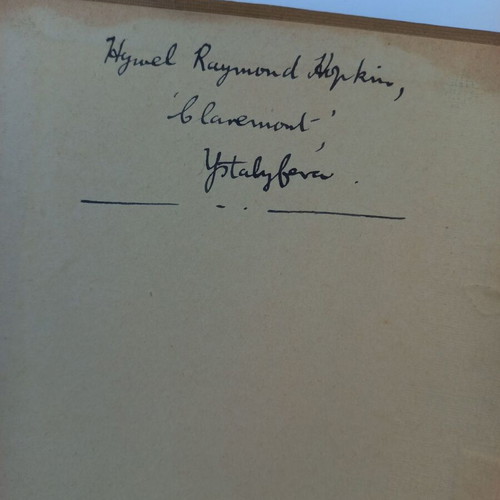 Hywel Raymond Hopkin,
'Claremont',
Ystalyfera.